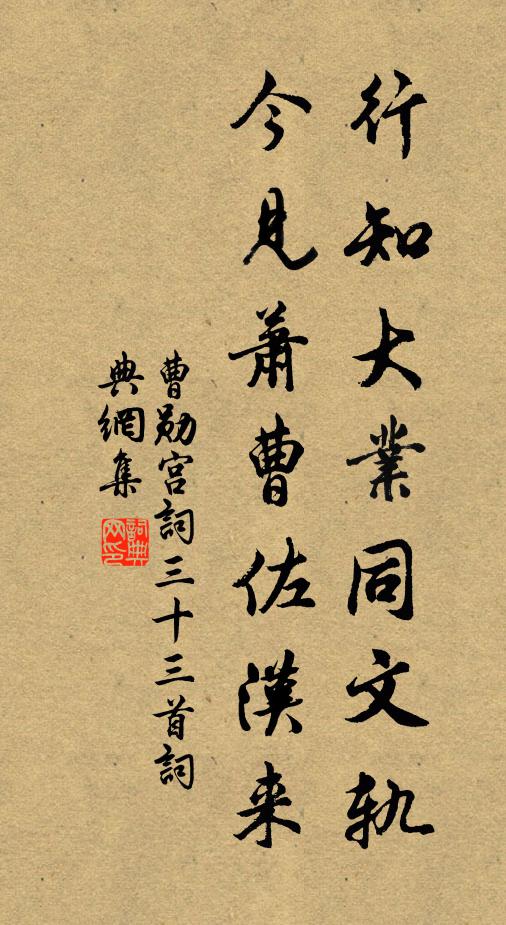 行知大業同文軌
今見蕭曹佐漢来
曹勛宮詞三十三首詞
典網集
詞典网印